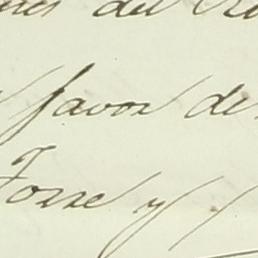 del
favor de
Torre y